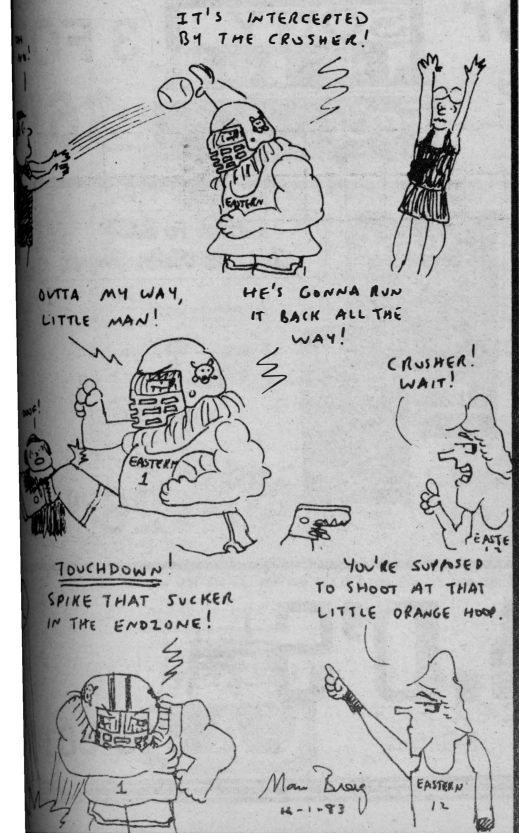 IT'S INTERCEPTED
BY THE CRUSHER!
EASTERN
OUTTA MY WAY,
LITTLE MAN!
HE'S GONNA RUN
IT BACK ALL THE
WAY!
CRUSHER!
WAIT!
EASTERN
1
EASTE
12
TOUCHDOWN!
SPIKE THAT SUCKER
IN THE ENDZONE!
YOU'RE SUPPOSED
TO SHOOT AT THAT
LITTLE ORANGE HOOP.
1
EASTERN
12